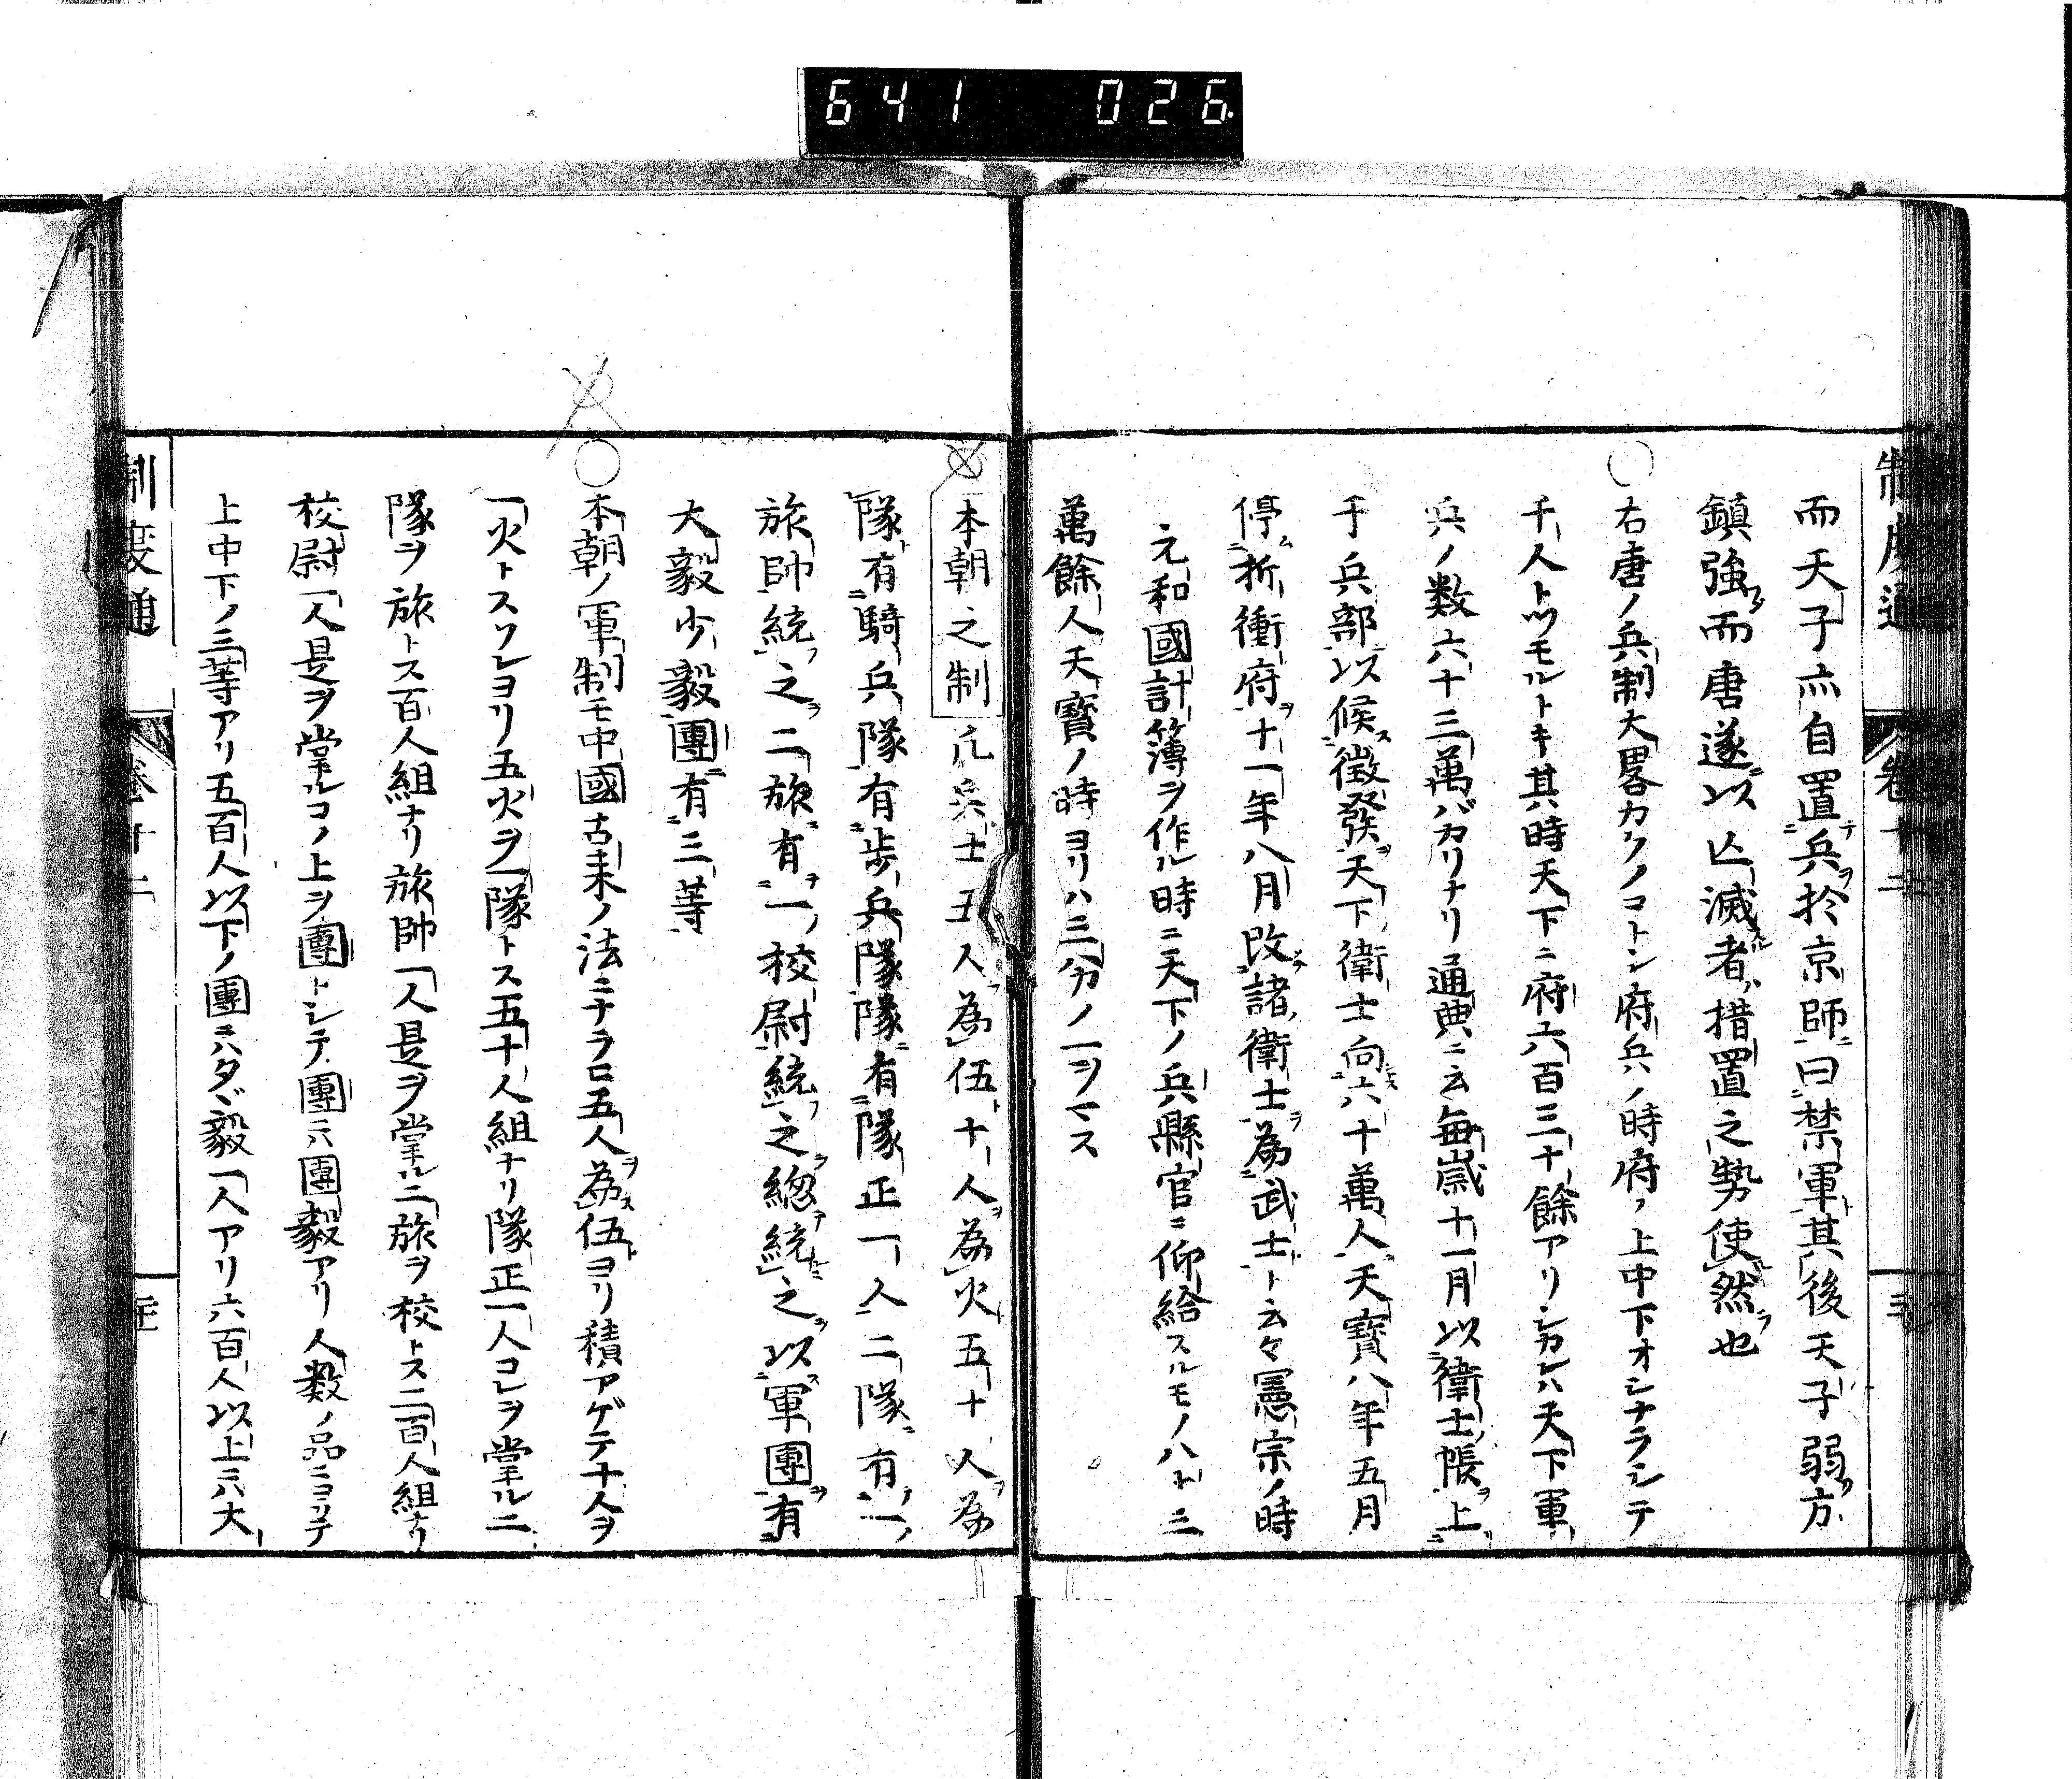 641 026
制度通 卷十二
而天子亦自置兵於京師曰禁軍其後天子弱方
鎮強而唐遂以亡滅者措置之勢使然也
右唐ノ兵制大畧カクノコトシ府兵ノ時府ノ上中下オシナラシテ
千人トツモルトキ其時天下ニ府六百三十餘アリシカレハ天下軍
兵ノ数六十三萬バカリナリ通典ニ云毎歳十一月以衛士帳上
于兵部以候徴發天下衛士向六十萬人天寳八年五月
停折衝府十一年八月改諸衛士為武士ト云々憲宗ノ時
元和國計簿ヲ作ル時ニ天下ノ兵縣官ニ仰給スルモノ八十三
萬餘人天寳ノ時ヨリハ三分カノ一ヲマス
本朝之制凢兵士五人為伍十人為火五十人為
隊有騎兵隊有歩兵隊隊有隊正一人二隊有一
旅帥統之二旅有一校尉統之總統之以軍團有
大毅少毅團有三等
本朝ノ軍制モ中國古来ノ法ニナラヒ五人為伍ヨリ積アゲテ十人ヲ
一火トスソレヨリ五火ヲ一隊トス五十人組ナリ隊正一人コレヲ掌ル二
隊ヲ旅トス百人組ナリ旅帥一人是ヲ掌ル二旅ヲ校トス二百人組ナリ
校尉一人是ヲ掌ルコノ上ヲ團トシテ團ニハ團毅アリ人数ノ品ニヨリテ
上中下ノ三等アリ五百人以下ノ團ニハタヾ毅一人アリ六百人以上ニハ大
制度通 卷十二